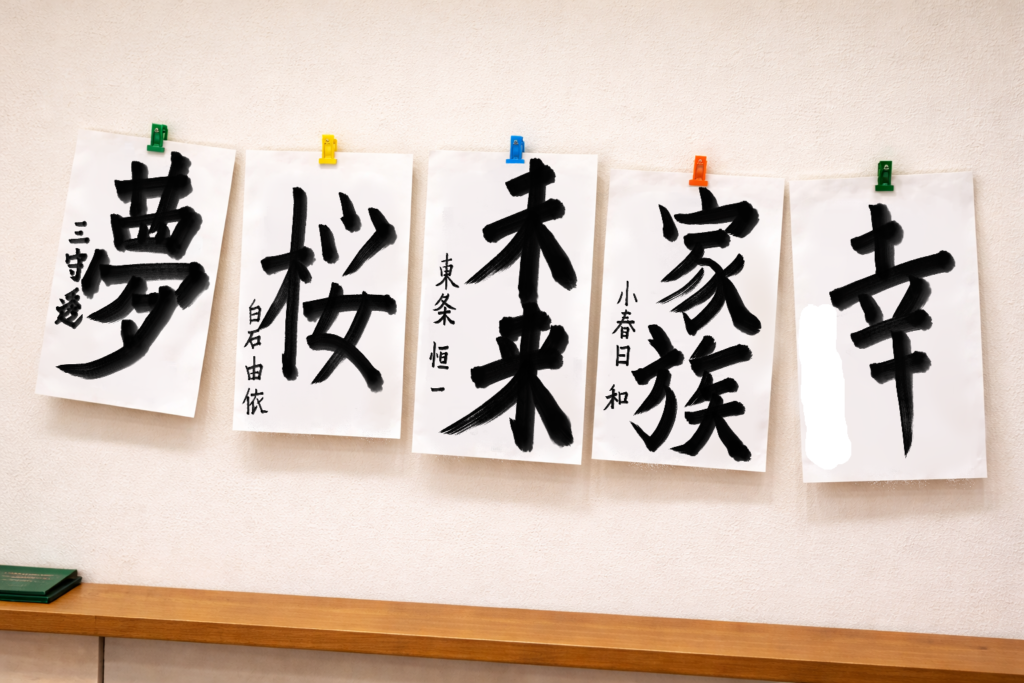 夢
三守
桜
白石由依
未来
東条 恒一
家族
小春日 和
幸